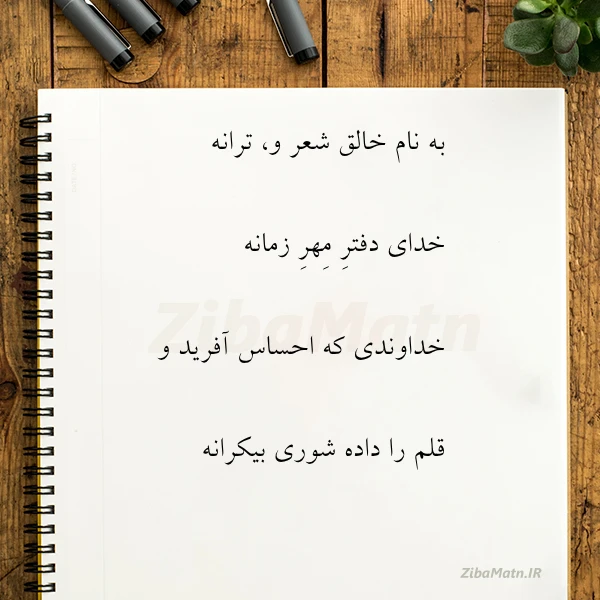 به نام خالق شعر و، ترانه
خدای دفترِ مِهرِ زمانه
ZibaMatn
خداوندی که احساس آفرید و
قلم را داده شوری بیکرانه
ZibaMatn.IR